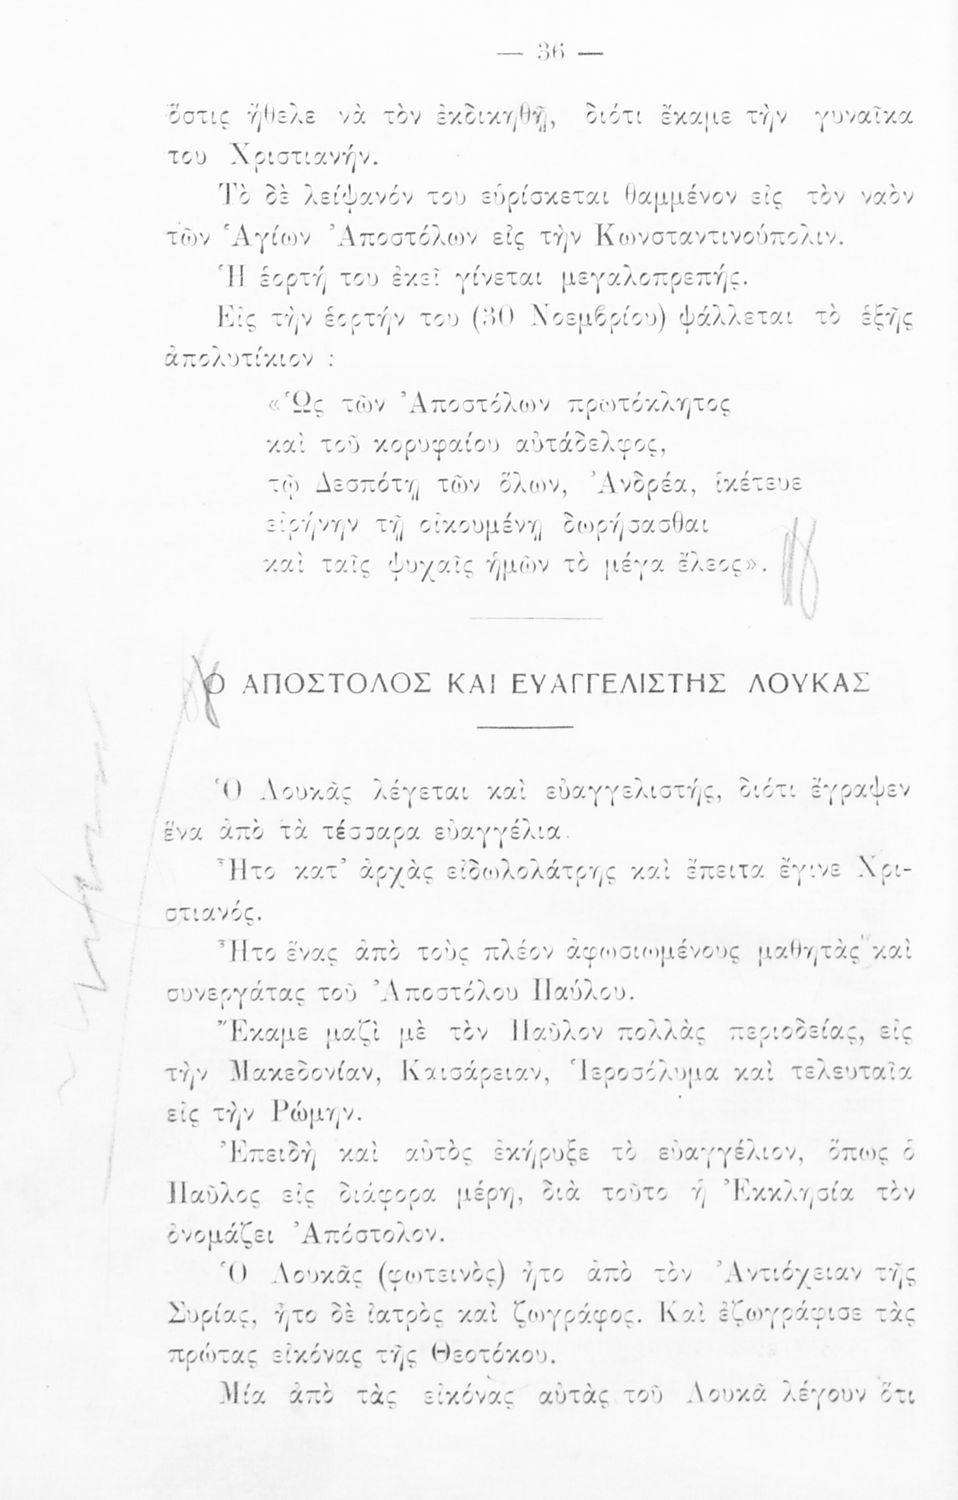 — 36 —
ὅστις ἤθελε νὰ τὸν ἐκδικηθῇ, διότι ἔκαμε τὴν γυναῖκα
του Χριστιανήν.
Τὸ δὲ λείψανόν του εὑρίσκεται θαμμένον εἰς τὸν ναὸν
τῶν Ἁγίων Ἀποστόλων εἰς τὴν Κωνσταντινούπολιν.
Ἡ ἑορτή του ἐκεῖ γίνεται μεγαλοπρεπής.
Εἰς τὴν ἑορτήν του (30 Νοεμβρίου) ψάλλεται τὸ ἑξῆς
ἀπολυτίκιον :
«Ὡς τῶν Ἀποστόλων πρωτόκλητος
καὶ τοῦ κορυφαίου αὐτάδελφος,
τῷ Δεσπότῃ τῶν ὅλων, Ἀνδρέα, ἱκέτευε
εἰρήνην τῇ οἰκουμένῃ δωρήσασθαι
καὶ ταῖς ψυχαῖς ἡμῶν τὸ μέγα ἔλεος».
Ο ΑΠΟΣΤΟΛΟΣ ΚΑΙ ΕΥΑΓΓΕΛΙΣΤΗΣ ΛΟΥΚΑΣ
Ὁ Λουκᾶς λέγεται καὶ εὐαγγελιστής, διότι ἔγραψεν
ἕνα ἀπὸ τὰ τέσσαρα εὐαγγέλια.
Ἦτο κατ’ ἀρχὰς εἰδωλολάτρης καὶ ἔπειτα ἔγινε Χρι-
στιανός.
Ἦτο ἕνας ἀπὸ τοὺς πλέον ἀφωσιωμένους μαθητὰς καὶ
συνεργάτας τοῦ Ἀποστόλου Παύλου.
Ἔκαμε μαζὶ μὲ τὸν Παῦλον πολλὰς περιοδείας, εἰς
τὴν Μακεδονίαν, Καισάρειαν, Ἱεροσόλυμα καὶ τελευταῖα
εἰς τὴν Ρώμην.
Ἐπειδὴ καὶ αὐτὸς ἐκήρυξε τὸ εὐαγγέλιον, ὅπως ὁ
Παῦλος εἰς διάφορα μέρη, διὰ τοῦτο ἡ Ἐκκλησία τὸν
ὀνομάζει Ἀπόστολον.
Ὁ Λουκᾶς (φωτεινὸς) ἦτο ἀπὸ τὸν Ἀντιόχειαν τῆς
Συρίας, ἦτο δὲ ἰατρὸς καὶ ζωγράφος. Καὶ ἐζωγράφισε τὰς
πρώτας εἰκόνας τῆς Θεοτόκου.
Μία ἀπὸ τὰς εἰκόνας αὐτὰς τοῦ Λουκᾶ λέγουν ὅτι